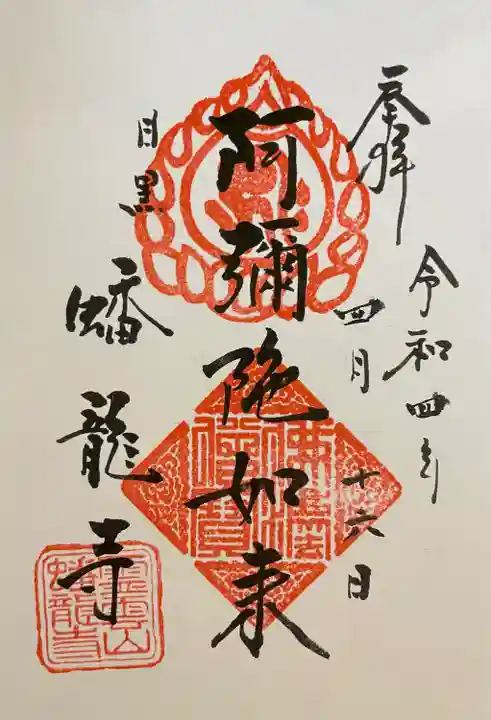 奉拝
令和四年
四月十六日
阿彌陀如来
目黒
蟠龍寺
霊雲山
蟠龍寺